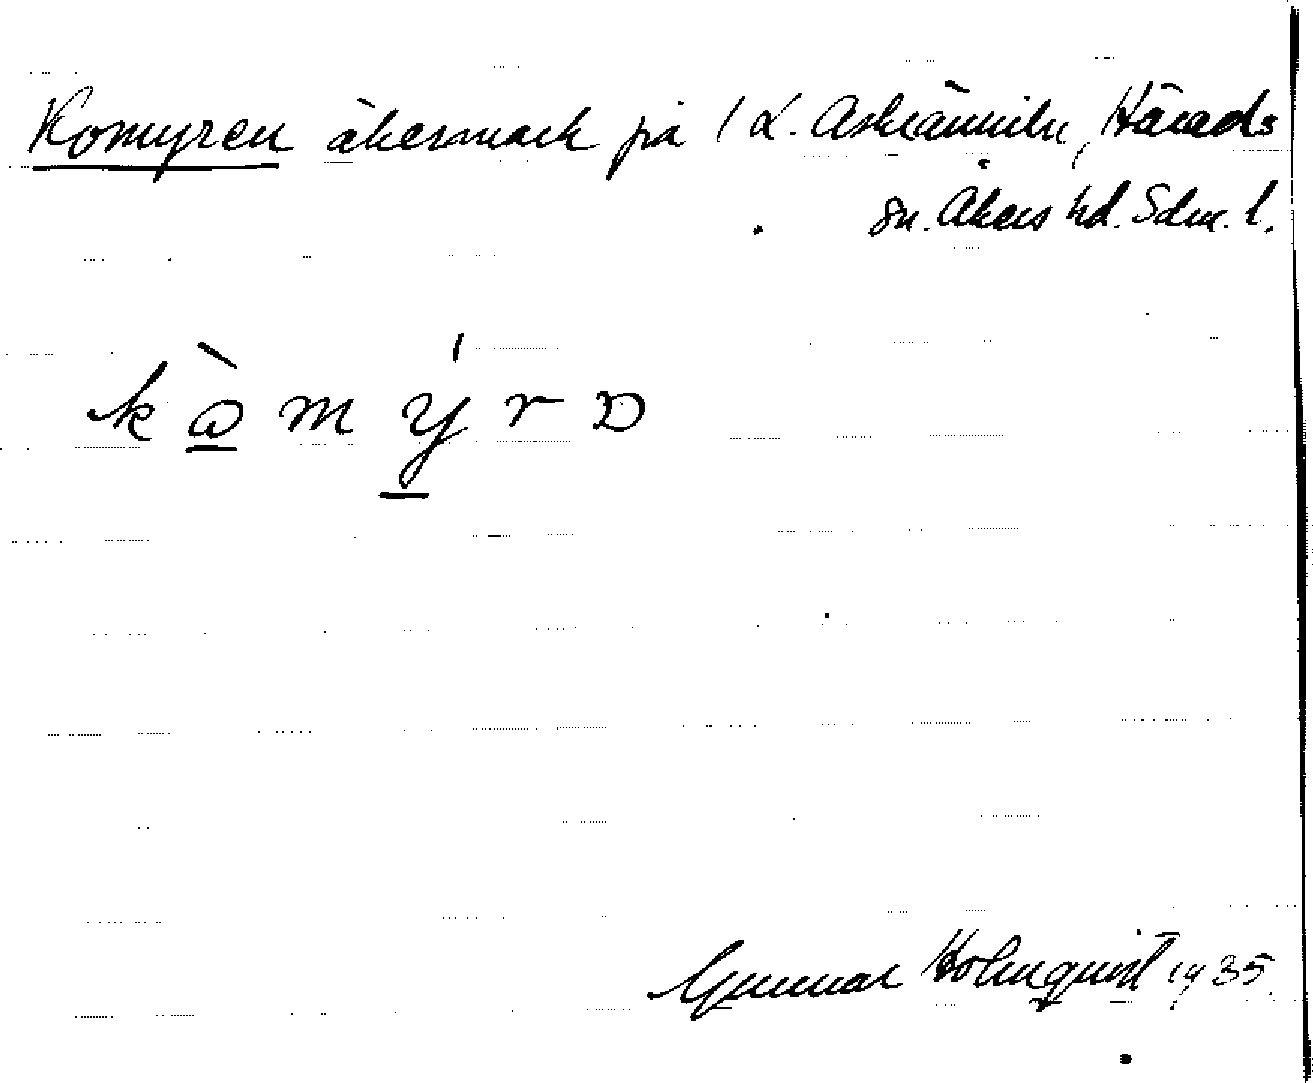 Komyren åkersmark på / L. Askännilen, Härads
sn. Åkers hd. Sdm. l.
kòmýrɒ
Gunnar Holmqvist 1935.